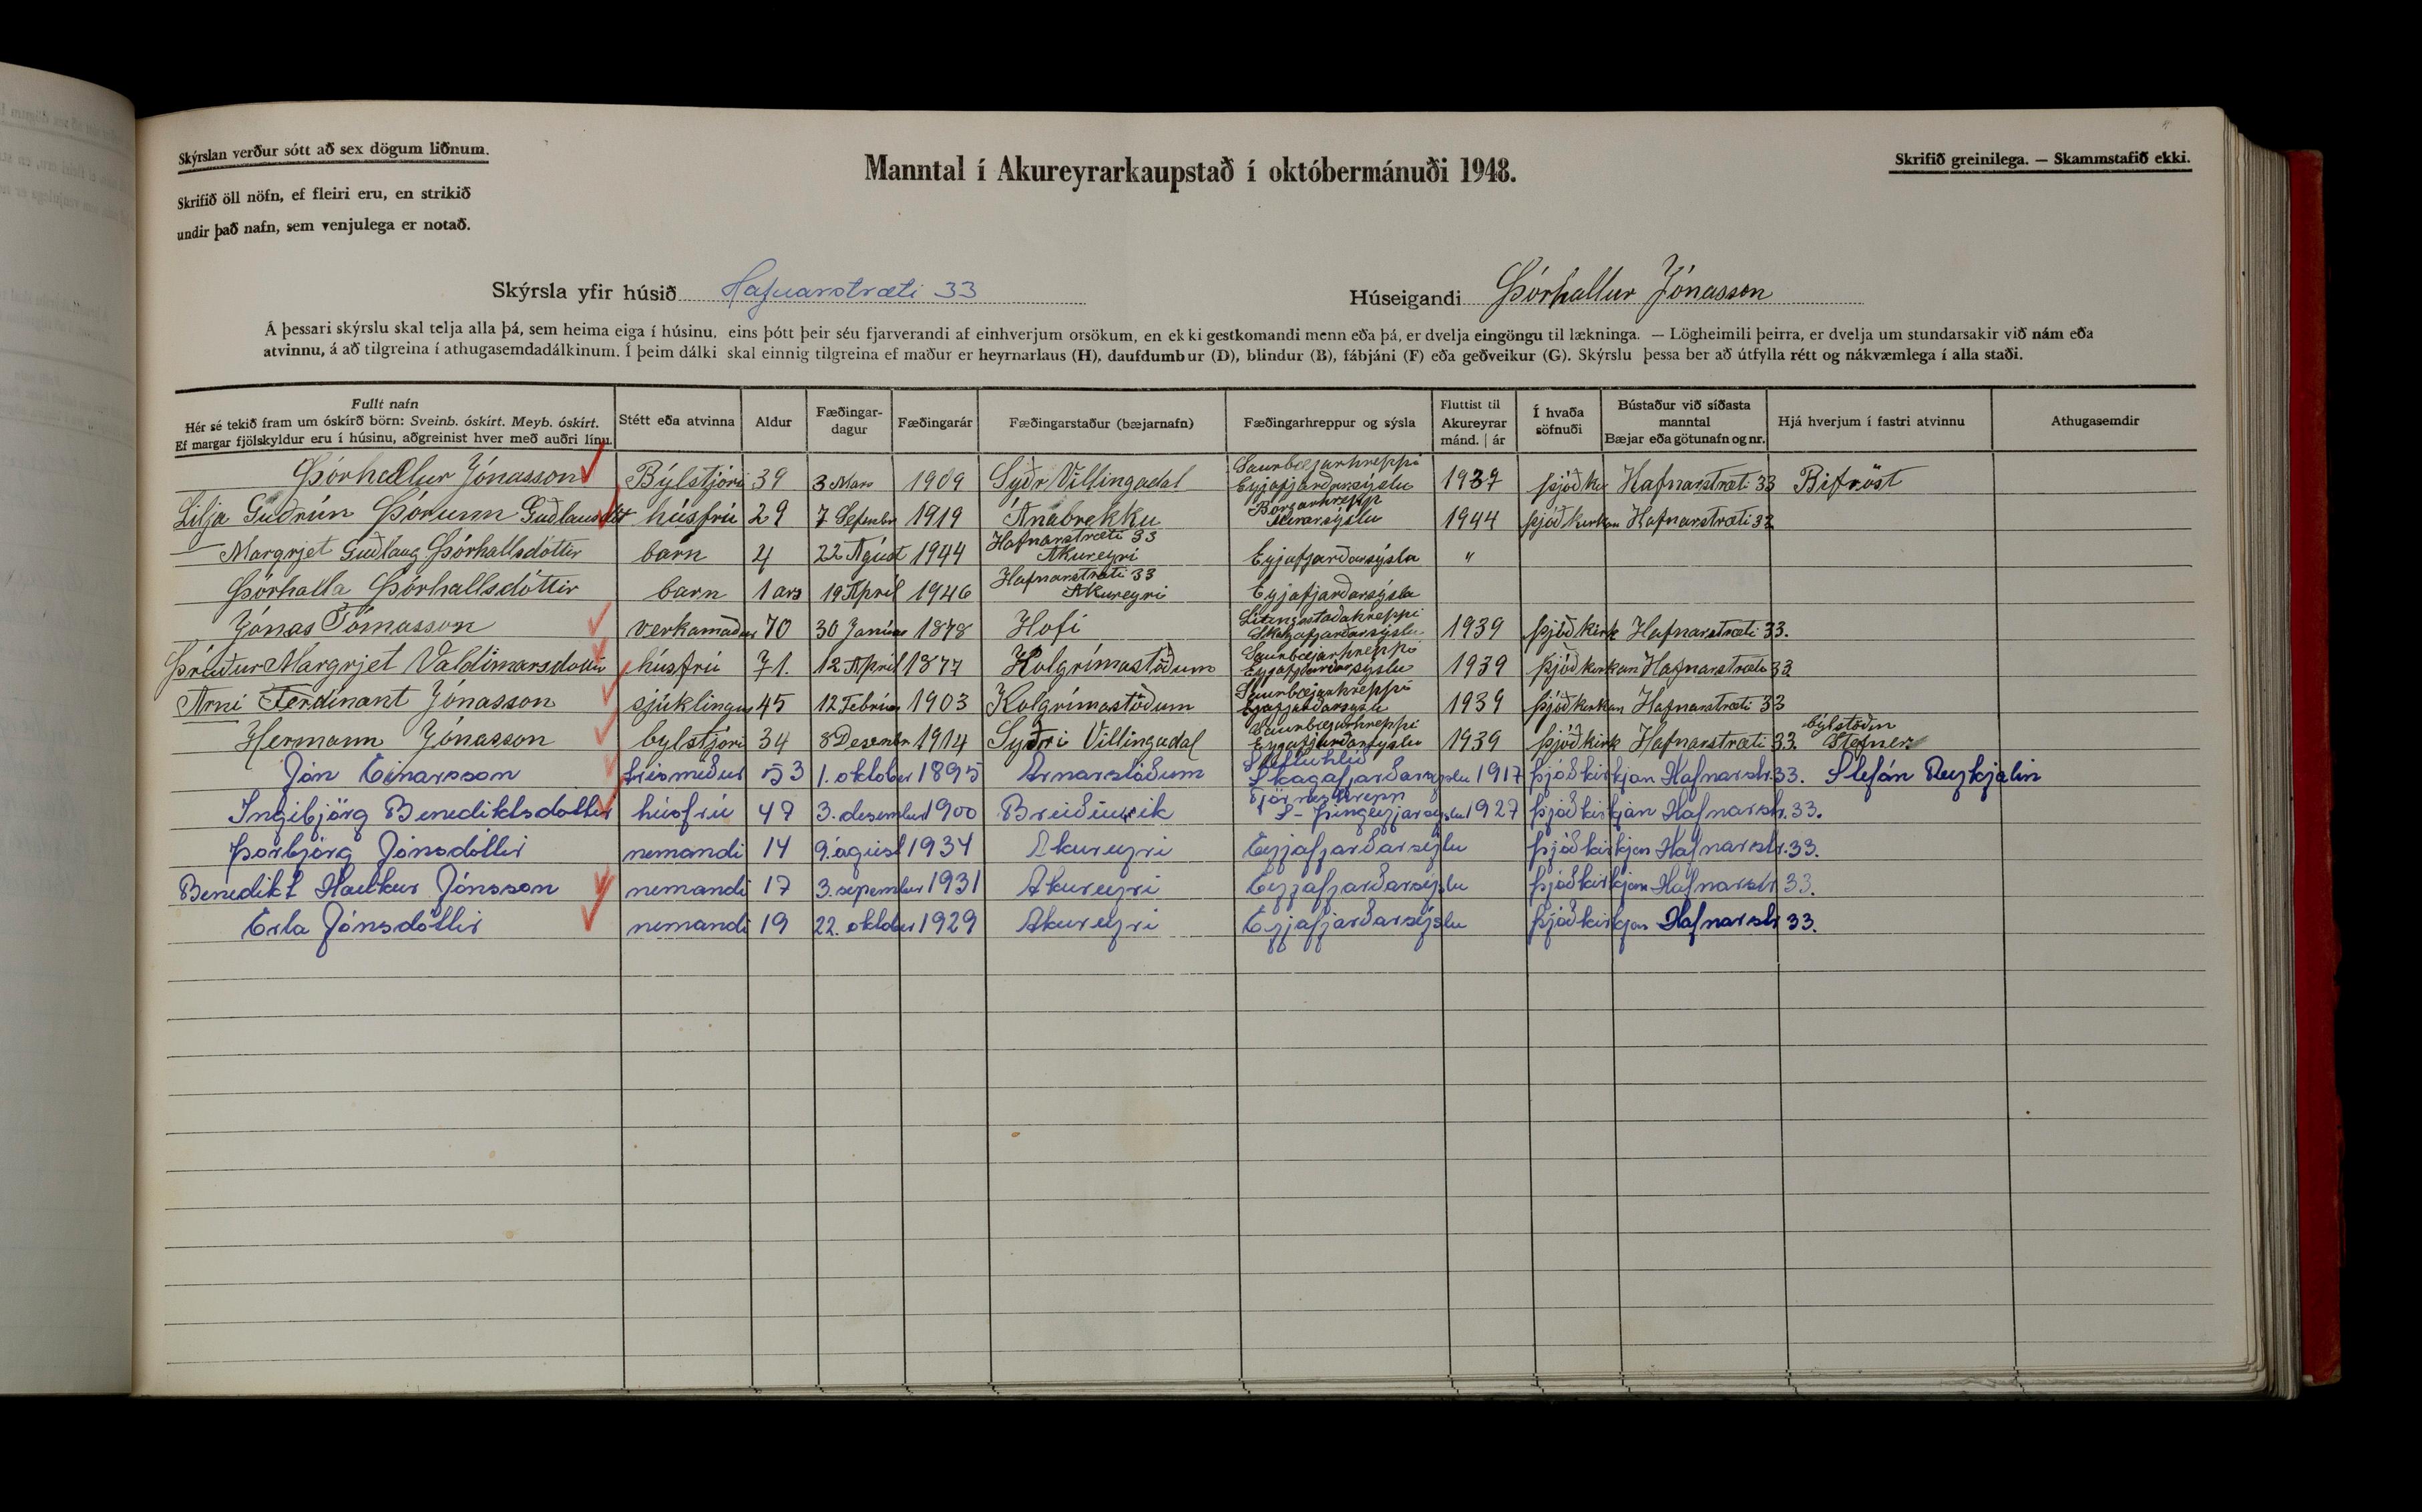 Skýrslan verður sótt að sex dögum liðnum.
Skrifið öll nöfn, ef fleiri eru, en strikið
undir það nafn, sem venjulega er notað.
Manntal í Akureyrarkaupstað í októbermánuði 1948.
Skrifið greinilega. — Skammstafið ekki.
Skýrsla yfir húsið Hafnarstræti 33
Húseigandi Þórhallur Jónasson
Á þessari skýrslu skal telja alla þá, sem heima eiga í húsinu, eins þótt þeir séu fjarverandi af einhverjum orsökum, en ekki gestkomandi menn eða þá, er dvelja eingöngu til lækninga. — Lögheimili þeirra, er dvelja um stundarsakir við nám eða
atvinnu, á að tilgreina í athugasemdadálkinum. Í þeim dálki skal einnig tilgreina ef maður er heyrnarlaus (H), daufdumbur (D), blindur (B), fábjáni (F) eða geðveikur (G). Skýrslu þessa ber að útfylla rétt og nákvæmlega í alla staði.
Fullt nafn Hér sé tekið fram um óskírð börn: Sveinb. óskírt. Meyb. óskírt. Ef margar fjölskyldur eru í húsinu, aðgreinist hver með auðri línu. Stétt eða atvinna Aldur Fæðingar-dagur Fæðingarár Fæðingarstaður (bæjarnafn) Fæðingarhreppur og sýsla Fluttist til Akureyrar mánd. | ár Í hvaða söfnuði Bústaður við síðasta manntal Bæjar eða götunafn og nr. Hjá hverjum í fastri atvinnu Athugasemdir
Þórhallur Jónasson Býlstjóri 39 3 Mars 1909 Syðr Villingadal Saurbæjarhreppi Eyjafjarðarsýslu 1937 þjóðki Hafnarstræti 33 Bifröst
Lilja Guðrún Þórunn Guðlaugsdótt húsfrú 29 7 Septembr 1919 Ánabrekku Borgarhrepp Mýrarsýslu 1944 þjóðkirkan Hafnarstræti 33
Margrjet Guðlaug Þórhallsdóttir barn 4 22 Ágúst 1944 Hafnarstræti 33 Akureyri Eyjafjarðarsýsla "
Þórhalla Þórhallsdóttir barn 1 ars 19 Apríl 1946 Hafnarstræti 33 Akureyri Eyjafjarðarsýsla
Jónas Tómasson verkamaður 70 30 Janúar 1878 Hofi Litingsstaðahreppi Skagafjarðarsýslu 1939 þjóðkirk Hafnarstræti 33.
Þríður Margrjet Valdimarsdottir húsfrú 71. 12 Apríl 1877 Kolgrímastöðum Saurbæjarhreppi Eyjafjarðarsýslu 1939 þjóðkirkan Hafnarstræti 33
Árni Ferdinant Jónasson sjúklingur 45 12 Febrúar 1903 Kolgrímastöðum Saurbæjarhreppi Eyjafjarðarsýslu 1939 þjóðkirkan Hafnarstræti 33
Hermann Jónasson bylstjóri 34 8 Desembr 1914 Syðri Villingadal Saurbæjarhreppi Eyjafjarðarsýslu 1939 þjóðkirk Hafnarstræti 33. bylstöðin Stefner
Jón Einarsson trésmiður 53 1. október 1895 Arnarstöðum Sléttuhlíð Skagafjarðarsýslu 1917 þjóðkirkjan Hafnarstr. 33. Stefán Reykjalín
Ingibjörg Benediktsdóttir húsfrú 47 3. desember 1900 Breiðuvík Tjörneshrepp S-Þingeyjarsýslu 1927 þjóðkirkjan Hafnarstr. 33.
Þorbjörg Jónsdóttir nemandi 14 9. ágúst 1934 Akureyri Eyjafjarðarsýslu þjóðkirkjan Hafnarstr. 33.
Benedikt Haukur Jónsson nemandi 17 3. sepember 1931 Akureyri Eyjafjarðarsýslu þjóðkirkjan Hafnarstr 33.
Erla Jónsdóttir nemandi 19 22. október 1929 Akureyri Eyjafjarðarsýslu þjóðkirkjan Hafnarstr 33.